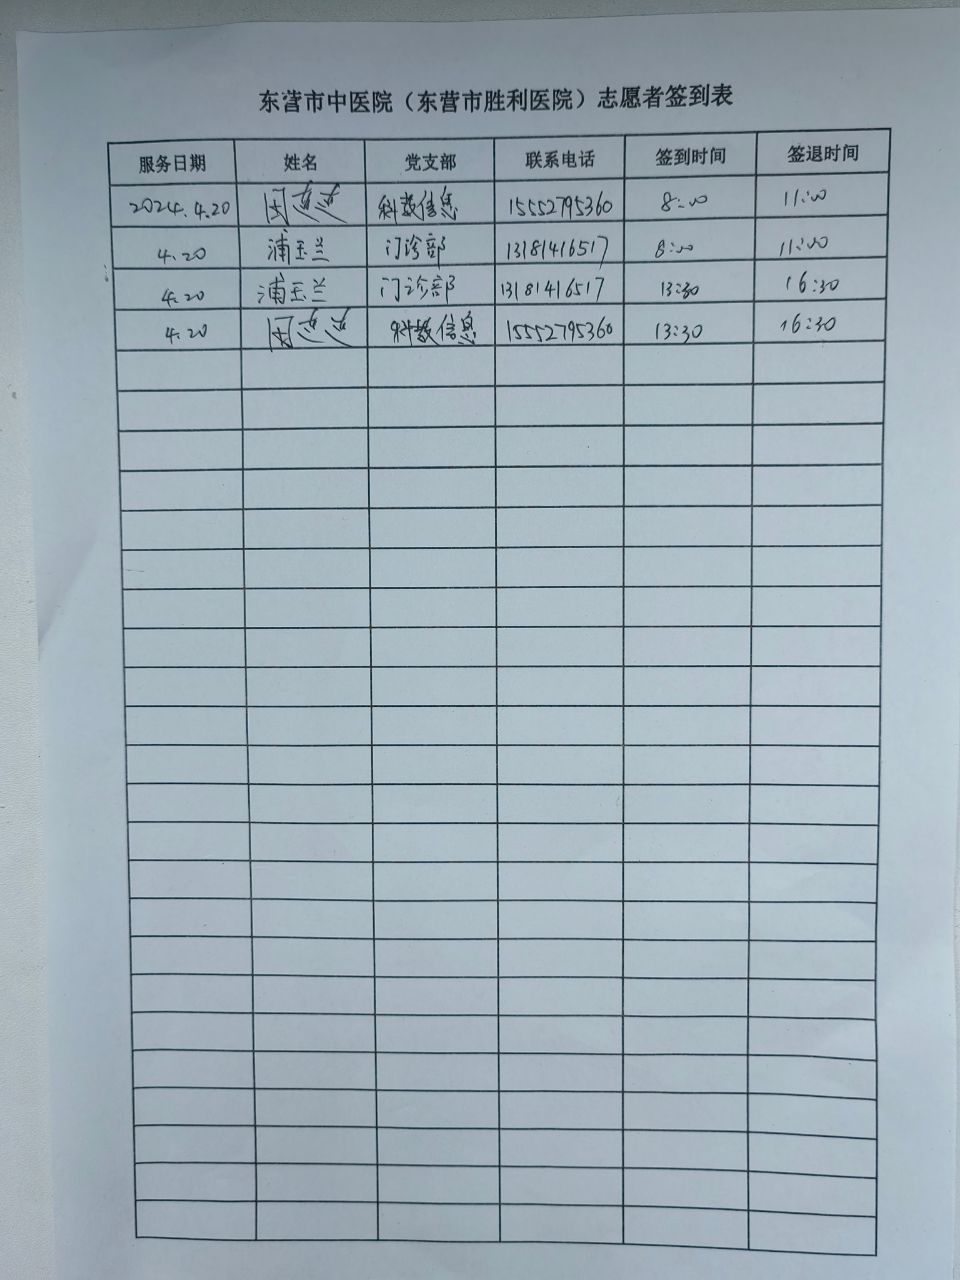 东营市中医院（东营市胜利医院）志愿者签到表
服务日期 姓名 党支部 联系电话 签到时间 签退时间
2024.4.20 科教信息 15552795360 8:00 11:00
4.20 浦玉兰 门诊部 13181416517 8:00 11:00
4.20 浦玉兰 门诊部 13181416517 13:30 16:30
4.20 科教信息 15552795360 13:30 16:30